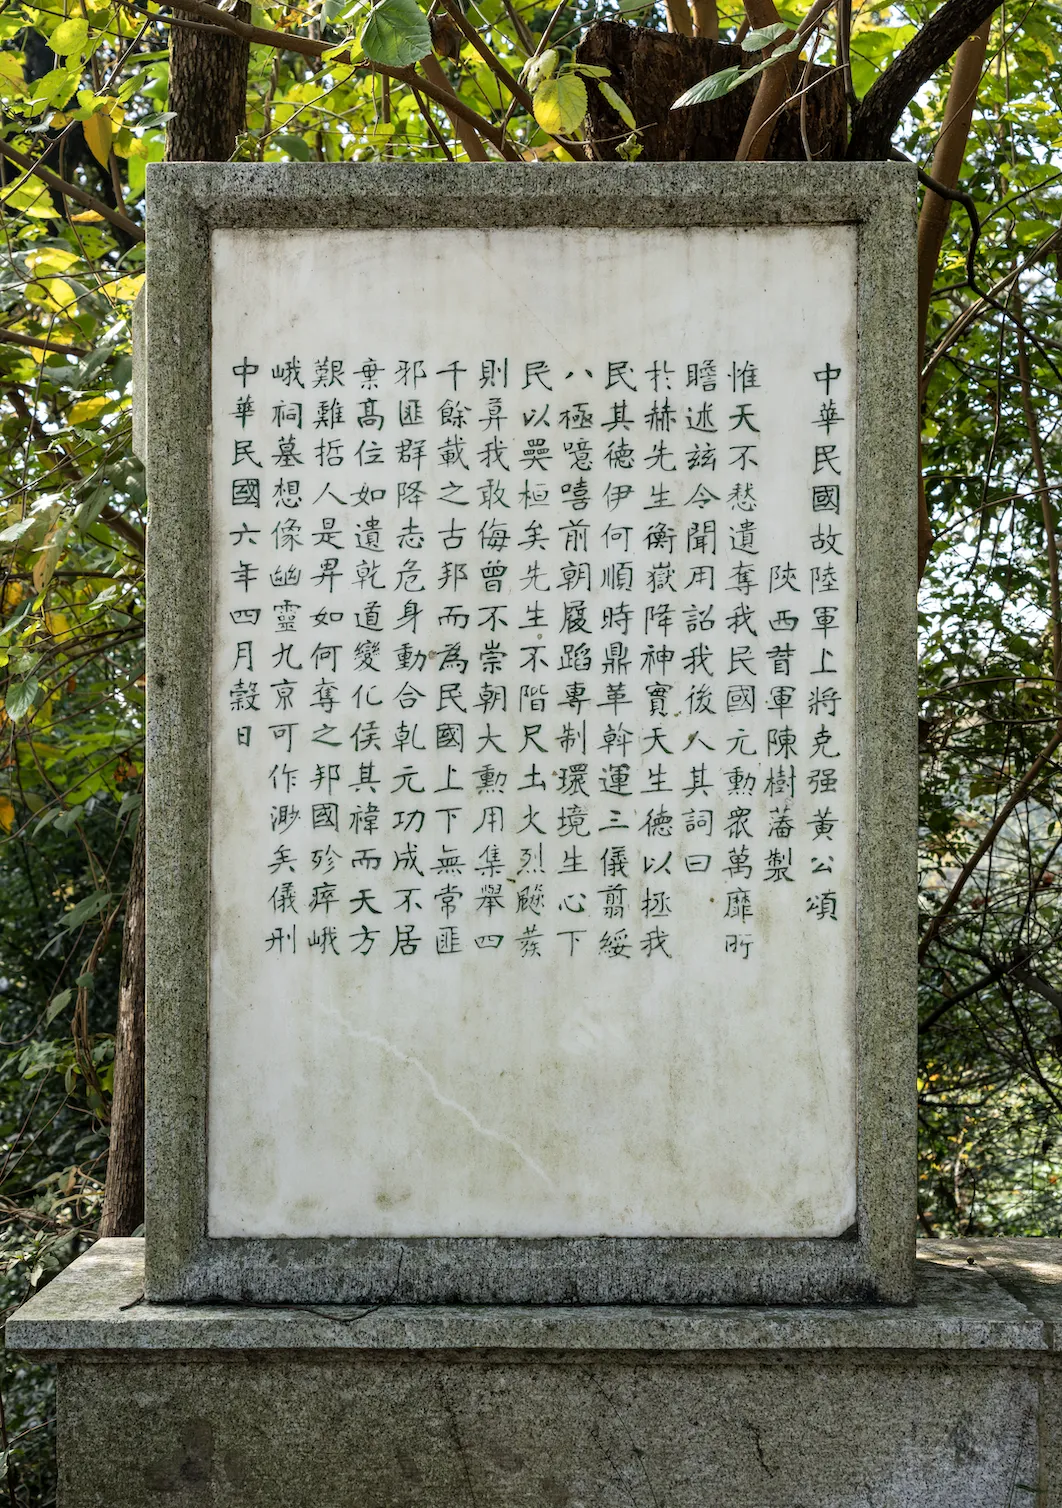 中華民國故陸軍上將克强黃公頌
陝西督軍陳樹藩製
惟天不憖遺奪我民國元勳衆萬靡所
瞻述兹令聞用詔我後人其詞曰
於赫先生衡嶽降神實天生德以拯我
民其德伊何順時鼎革斡運三儀翦綏
八極噫嘻前朝履蹈專制環境生心下
民以㷼桓矣先生不階尺土火烈飈蕤
則算我敢侮曾不崇朝大勳用集舉四
千餘載之古邦而為民國上下無常匪
邪匪群降志危身動合乹元功成不居
棄高位如遺乾道變化俟其禕而天方
艱難哲人是畀如何奪之邦國殄瘁峨
峨祠墓想像幽靈九京可作渺矣儀刑
中華民國六年四月穀日